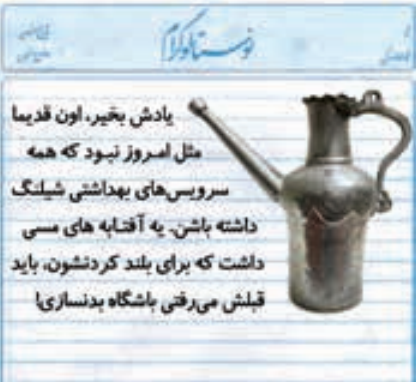 نوستالوگرام
یادش بخیر، اون قدیما
مثل امروز نبود که همه
سرویس‌های بهداشتی شیلنگ
داشته باشن. یه آفتابه های مسی
داشت که برای بلند کردنشون، باید
قبلش می‌رفتی باشگاه بدنسازی!